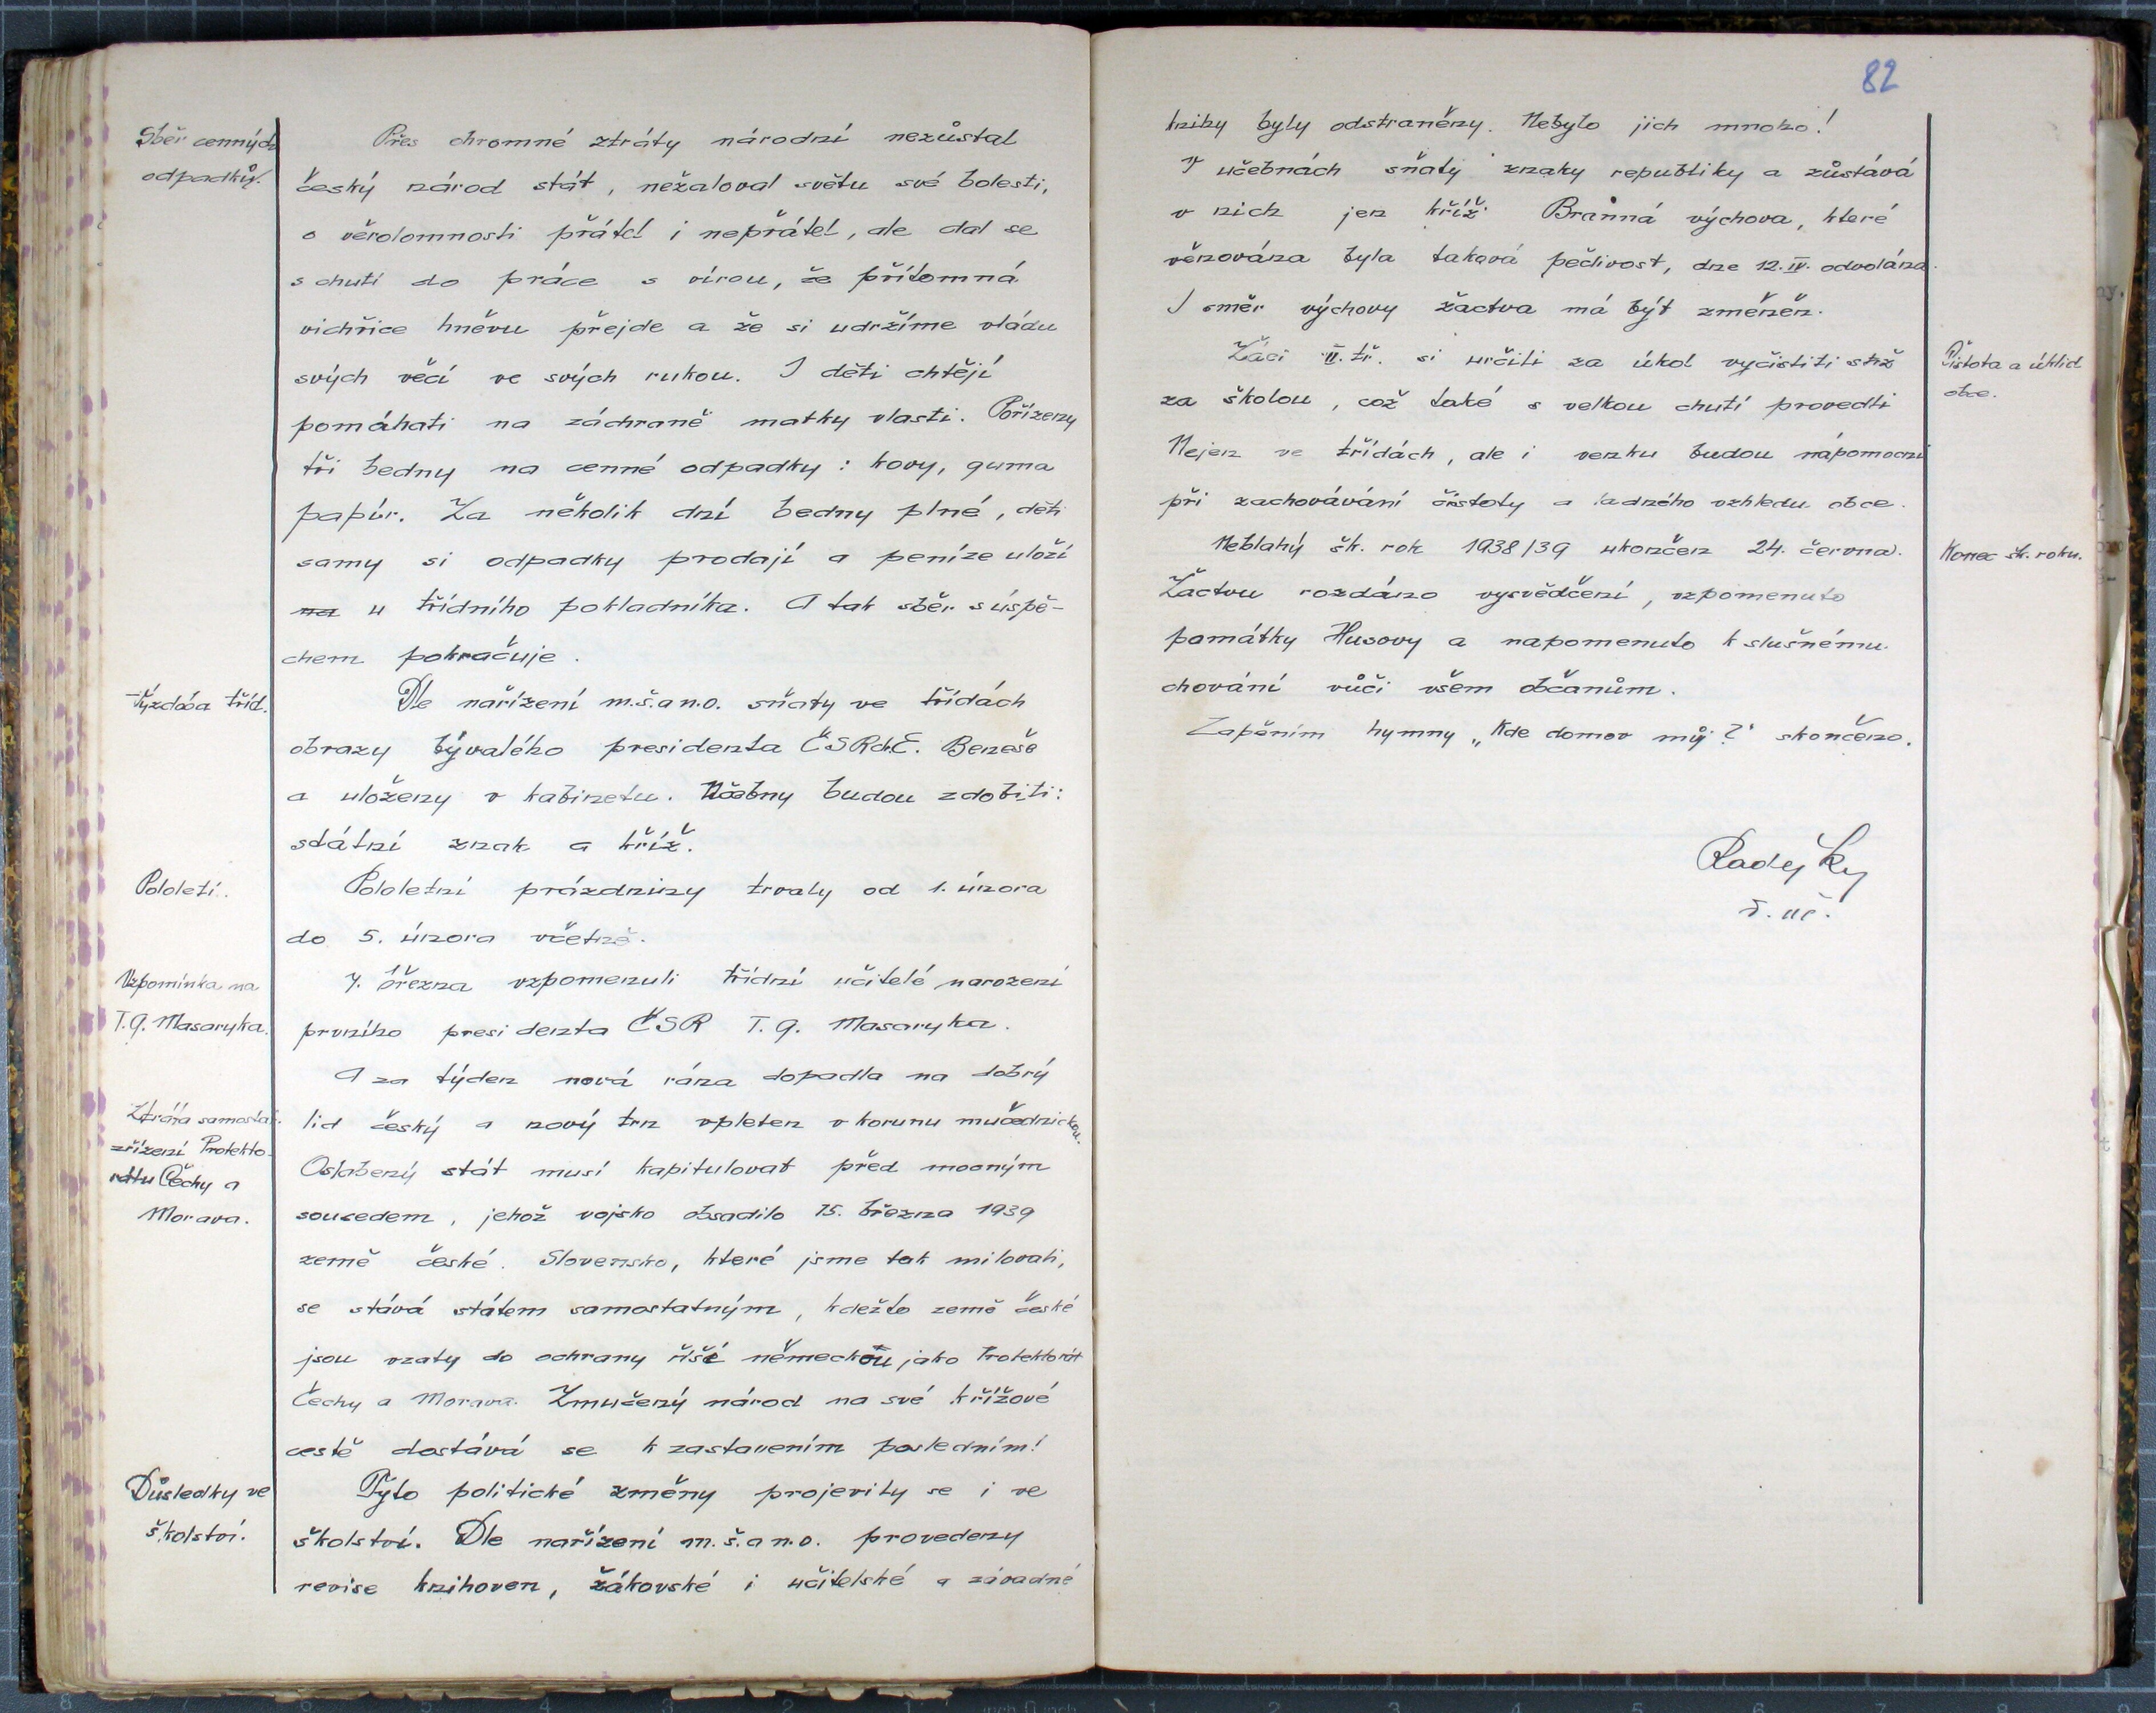 Sběr cenných
odpadků.
Přes ohromné ztráty národní nezůstal
český národ stát, nežaloval světu své bolesti,
o věrolomnosti přátel i nepřátel, ale dal se
s chutí do práce s vírou, že přítomná
vichřice hněvu přejde a že si udržíme vládu
svých věcí ve svých rukou. I děti chtějí
pomáhati na záchraně matky vlasti. Pořízeny
tři bedny na cenné odpadky: kovy, guma
papír. Za několik dní bedny plné, děti
samy si odpadky prodají a peníze uloží
na u třídního pokladníka. A tak sběr s úspě-
chem pokračuje.
Výzdoba tříd.
Dle nařízení m.š.a n.o. sňaty ve třídách
obrazy bývalého presidenta ČSR dr. E. Beneše
a uloženy v kabinetu. Učebny budou zdobiti:
státní znak a kříž.
Pololetí.
Pololetní prázdniny trvaly od 1. února
do 5. února včetně.
Vzpomínka na
T.G. Masaryka.
7. března vzpomenuli třídní učitelé narození
prvního presidenta ČSR T. G. Masaryka.
A za týden nová rána dopadla na dobrý
Ztráta samostat.
zřízení Protekto-
rátu Čechy a
Morava.
lid český a nový trn vpleten v korunu mučednickou.
Oslabený stát musí kapitulovat před mocným
sousedem, jehož vojsko obsadilo 15. března 1939
země české. Slovensko, které jsme tak milovali,
se stává státem samostatným, kdežto země české
jsou vzaty do ochrany říše německou jako Protektorát
Čechy a Morava. Zmučený národ na své křížové
cestě dostává se k zastavením posledním!
Důsledky ve
školství.
Tyto politické změny projevily se i ve
školství. Dle nařízení m.š.a n.o. provedeny
revise knihoven, žákovské i učitelské a závadné
82
knihy byly odstraněny. Nebylo jich mnoho!
V učebnách sňaty znaky republiky a zůstává
v nich jen kříž. Branná výchova, které
věnována byla taková pečlivost, dne 12.IV. odvolána.
I směr výchovy žactva má být změněn.
Čistota a úklid
obce.
Žáci II. tř. si určili za úkol vyčistiti stráž
za školou, což také s velkou chutí provedli
Nejen ve třídách, ale i venku budou nápomocni
při zachovávání čistoty a ladného vzhledu obce.
Konec šk. roku.
Neblahý šk. rok 1938/39 ukončen 24. června.
Žactvu rozdáno vysvědčení, vzpomenuto
památky Husovy a napomenuto k slušnému
chování vůči všem občanům.
Zapěním hymny „Kde domov můj?“ skončeno.
ř. uč.